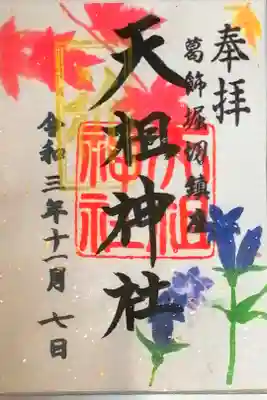 奉拝
葛飾堀切鎮座
天祖神社
令和三年十一月七日
天祖
神社